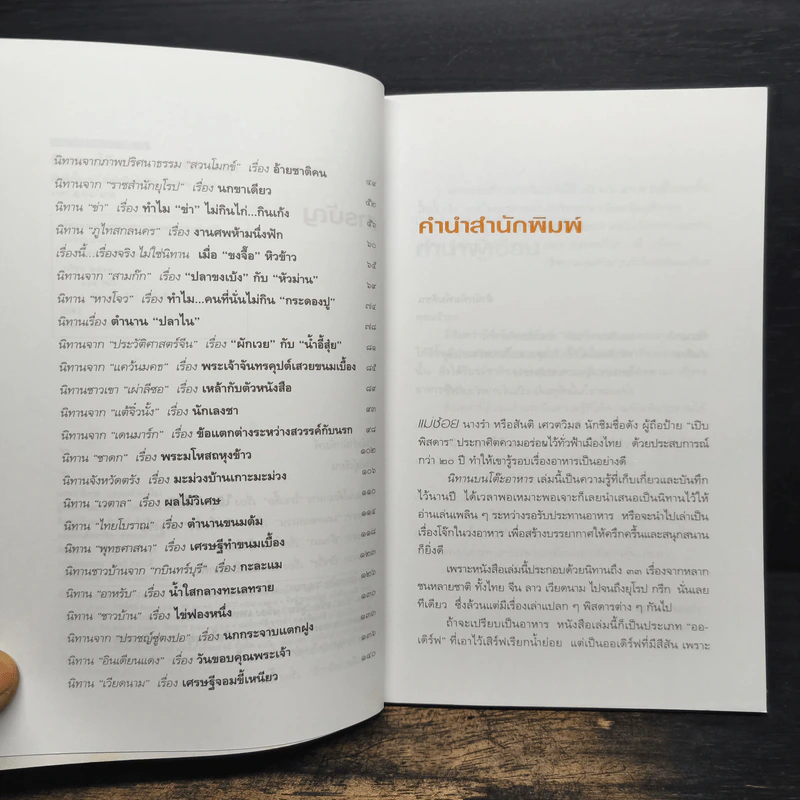 นิทานจากภาพปริศนาธรรม "สวนโมกข์" เรื่อง อ้ายชาติคน
นิทานจาก "ราชสำนักยุโรป" เรื่อง นกขาเดียว ๔๔
นิทาน "ข่า" เรื่อง ทำไม "ข่า" ไม่กินไก่...กินเก้ง ๕๒
นิทาน "ภูไทสกลนคร" เรื่อง งานศพห้ามนึ่งฟัก ๕๖
เรื่องนี้...เรื่องจริง ไม่ใช่นิทาน เมื่อ "ขงจื๊อ" หิวข้าว ๖๐
นิทานจาก "สามก๊ก" เรื่อง "ปลาขงเบ้ง" กับ "หัวม่าน" ๖๕
นิทาน "หางโจว" เรื่อง ทำไม...คนที่นั่นไม่กิน "กระดองปู" ๖๙
นิทานเรื่อง ตำนาน "ปลาไน" ๗๔
นิทานจาก "ประวัติศาสตร์จีน" เรื่อง "ผักเวย" กับ "น้ำอี้สุ่ย" ๗๘
นิทานจาก "แคว้นมคธ" เรื่อง พระเจ้าจันทรคุปต์เสวยขนมเบื้อง ๘๑
นิทานชาวเขา "เผ่าลีซอ" เรื่อง เหล้ากับตัวหนังสือ ๘๕
นิทานจาก "แต้จิ๋วนั้ง" เรื่อง นักเลงชา ๘๙
นิทานจาก "เดนมาร์ก" เรื่อง ข้อแตกต่างระหว่างสวรรค์กับนรก ๙๓
นิทาน "ชาดก" เรื่อง พระมโหสถหุงข้าว ๙๘
นิทานจังหวัดตรัง เรื่อง มะม่วงบ้านเกาะมะม่วง ๑๐๓
นิทาน "เวตาล" เรื่อง ผลไม้วิเศษ ๑๐๖
นิทาน "ไทยโบราณ" เรื่อง ตำนานขนมต้ม ๑๑๐
นิทาน "พุทธศาสนา" เรื่อง เศรษฐีทำขนมเบื้อง ๑๑๔
นิทานชาวบ้านจาก "กบินทร์บุรี" เรื่อง กะละแม ๑๑๘
นิทาน "อาหรับ" เรื่อง น้ำใสกลางทะเลทราย ๑๒๓
นิทาน "ชาวบ้าน" เรื่อง ไข่ฟองหนึ่ง ๑๒๖
นิทานจาก "ปราชญ์ซู่ตงปอ" เรื่อง นกกระจาบแตกฝูง ๑๓๐
นิทาน "อินเดียนแดง" เรื่อง วันขอบคุณพระเจ้า ๑๓๓
นิทาน "เวียดนาม" เรื่อง เศรษฐีจอมขี้เหนียว ๑๓๖
๑๔๖
คำนำสำนักพิมพ์
แม่ช้อย นางรำ หรือสันติ เศวตวิมล นักชิมชื่อดัง ผู้ถือป้าย "เปิบ
พิสดาร" ประกาศิตความอร่อยไว้ทั่วฟ้าเมืองไทย ด้วยประสบการณ์
กว่า ๒๐ ปี ทำให้เขารู้รอบเรื่องอาหารเป็นอย่างดี
นิทานบนโต๊ะอาหาร เล่มนี้เป็นความรู้ที่เก็บเกี่ยวและบันทึก
ไว้นานปี ได้เวลาพอเหมาะพอเจาะก็เลยนำเสนอเป็นนิทานไว้ให้
อ่านเล่นเพลิน ๆ ระหว่างรอรับประทานอาหาร หรือจะนำไปเล่าเป็น
เรื่องโจ๊กในวงอาหาร เพื่อสร้างบรรยากาศให้ครึกครื้นและสนุกสนาน
ก็ยิ่งดี
เพราะหนังสือเล่มนี้ประกอบด้วยนิทานถึง ๓๓ เรื่องจากหลาก
ชนหลายชาติ ทั้งไทย จีน ลาว เวียดนาม ไปจนถึงยุโรป กรีก นั่นเลย
ทีเดียว ซึ่งล้วนแต่มีเรื่องเล่าแปลก ๆ พิสดารต่าง ๆ กันไป
ถ้าจะเปรียบเป็นอาหาร หนังสือเล่มนี้ก็เป็นประเภท "ออ-
เดิร์ฟ" ที่เอาไว้เสิร์ฟเรียกน้ำย่อย แต่เป็นออเดิร์ฟที่มีสีสัน เพราะ